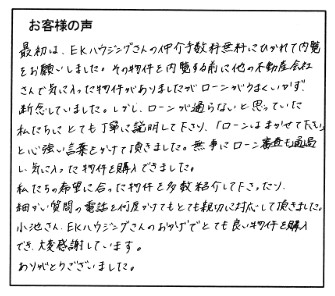 お客様の声
最初は、EKハウジングさんの仲介手数料無料にひかれて内覧
をお願いしました。その物件を内覧する前に他の不動産会社
さんで気に入った物件がありましたがローンがうまくいかず、
断念していました。しかし、ローンが通らないと思っていた
私たちにとても丁寧に説明して下さり、「ローンはまかせて下さい」
と心強い言葉をかけて頂きました。無事にローン審査も通過
し気に入った物件を購入できました。
私たちの希望に合った物件を多数紹介して下さったり、
細かい質問の電話を何度かけてもとても親切に対応して頂きました。
小池さん、EKハウジングさんのおかげでとても良い物件を購入
でき、大変感謝しています。
ありがとうございました。